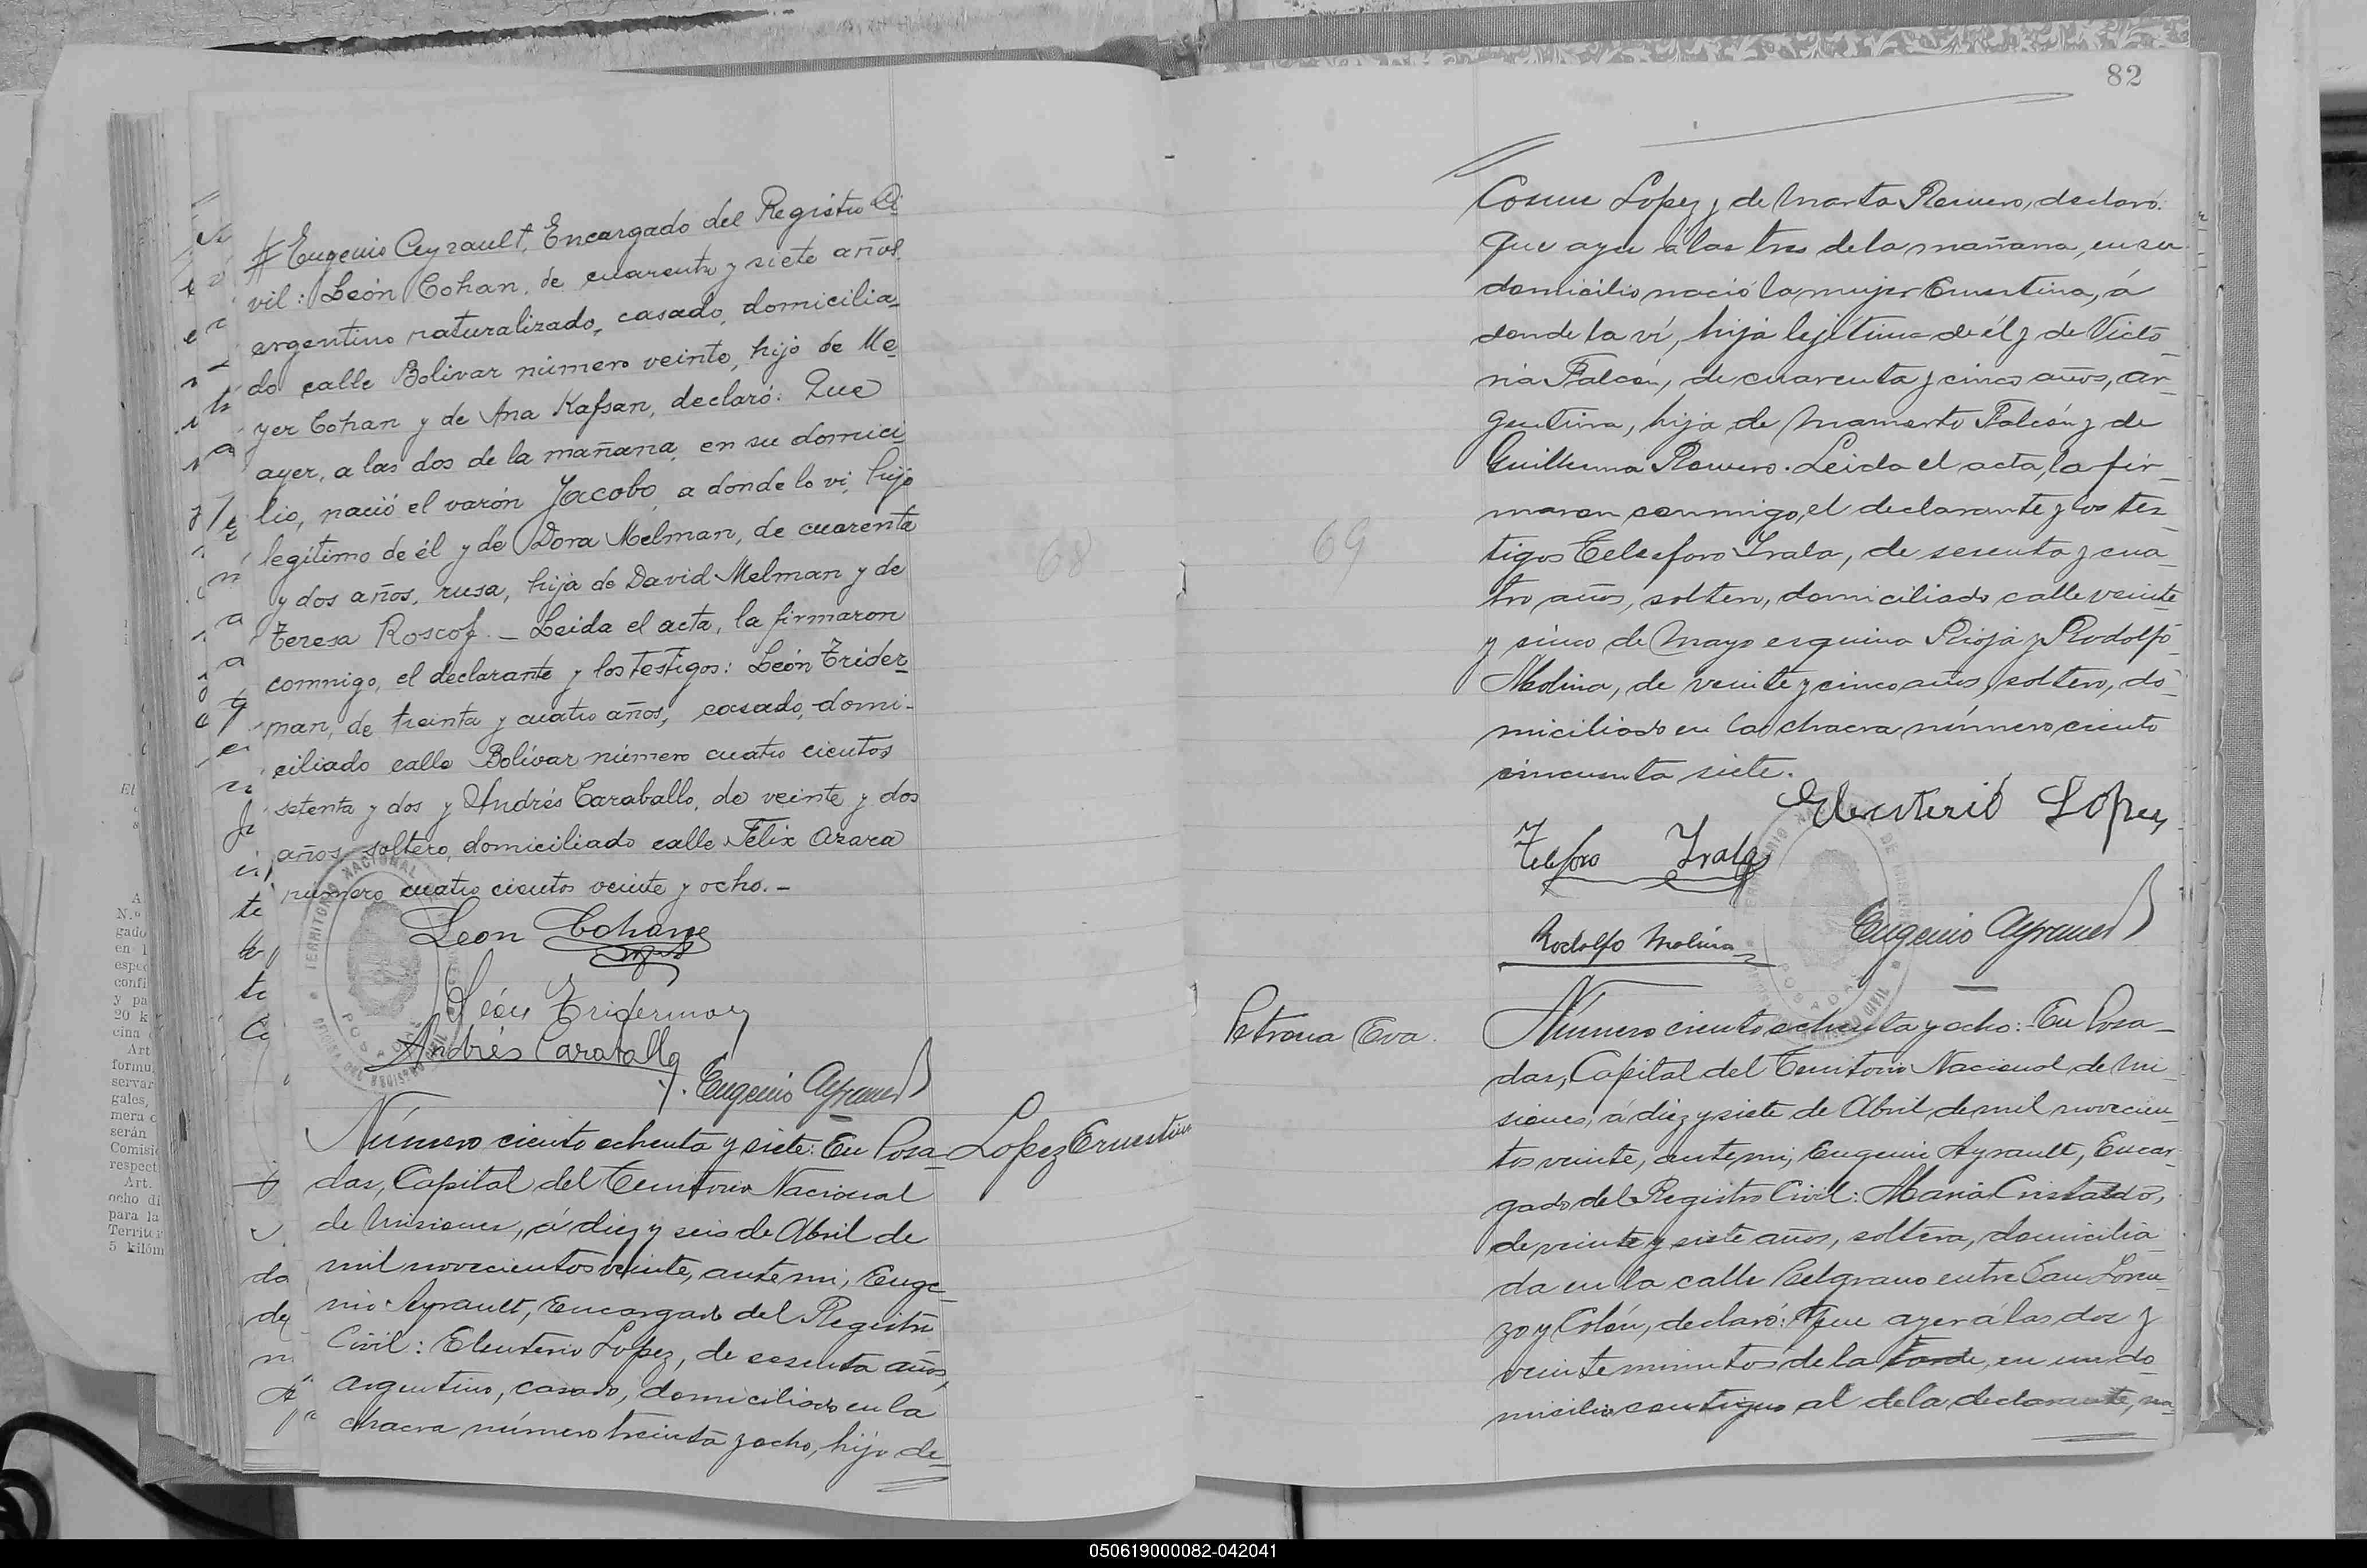 # Eugenio Ayrault, Encargado del Registro Ci
vil: León Cohan, de cuarenta y siete años,
argentino naturalizado, casado, domicilia-
do calle Bolivar número veinte, hijo de Me
yer Cohan y de Ana Kafsan, declaró: Que
ayer, a las dos de la mañana, en su domici
lio, nació el varón Jacobo, a donde lo vi, hijo
legítimo de él y de Dora Melman, de cuarenta
y dos años, rusa, hija de David Melman y de
Teresa Roscof. _ Leida el acta, la firmaron
conmigo, el declarante y los testigos: León Trider-
man, de treinta y cuatro años, casado, domi-
ciliado calle Bolívar número cuatro cientos
setenta y dos y Andrés Caraballo, de veinte y dos
años, soltero, domiciliado calle Felix Azara
número cuatro cientos veinte y ocho. -
Leon Cohan
León Triderman
Andrés Caraballo
Eugenio Ayrault
68
Lopez Ernestina
Número ciento ochenta y siete: En Posa-
das, Capital del Territorio Nacional
de Misiones, á diez y seis de Abril de
mil novecientos veinte, ante mi, Euge-
nio Ayrault, Encargado del Registro
Civil: Eleuterio Lopez, de sesenta años,
argentino, casado, domiciliado en la
chacra número treinta y ocho, hijo de
82
Cosme Lopez y de Marta Romero, declaró:
Que ayer á las tres de la mañana, en su
domicilio nació la mujer Ernestina, á
donde la ví, hija lejítima de él y de Victo
ria Falcón, de cuarenta y cinco años, ar-
gentina, hija de Mamerto Falcón y de
Guillerma Romero. Leida el acta, la fir-
maron conmigo, el declarante y los tes-
tigos Telesforo Irala, de sesenta y cua-
tro años, soltero, domiciliado calle veinte
y cinco de Mayo esquina Rioja y Rodolfo
Molina, de veinte y cinco años, soltero, do-
miciliado en la chacra número ciento
cincuenta siete.
Eleuterio Lopez
Telesforo Irala
Rodolfo Molina
Eugenio Ayrault
69
Petrona Eva.
Número ciento ochenta y ocho: En Posa-
das, Capital del Territorio Nacional de Mi-
siones, á diez y siete de Abril de mil novecien-
tos veinte, ante mi, Eugenio Ayrault, Encar-
gado del Registro Civil: María Cristaldo,
de veinte y siete años, soltera, domicilia-
da en la calle Belgrano entre San Loren-
zo y Colón, declaró: Que ayer á las dos y
veinte minutos de la tarde, en un do-
micilio contiguo al de la declarante, na-
TERRITORIO NACIONAL
POSADAS
050619000082-042041